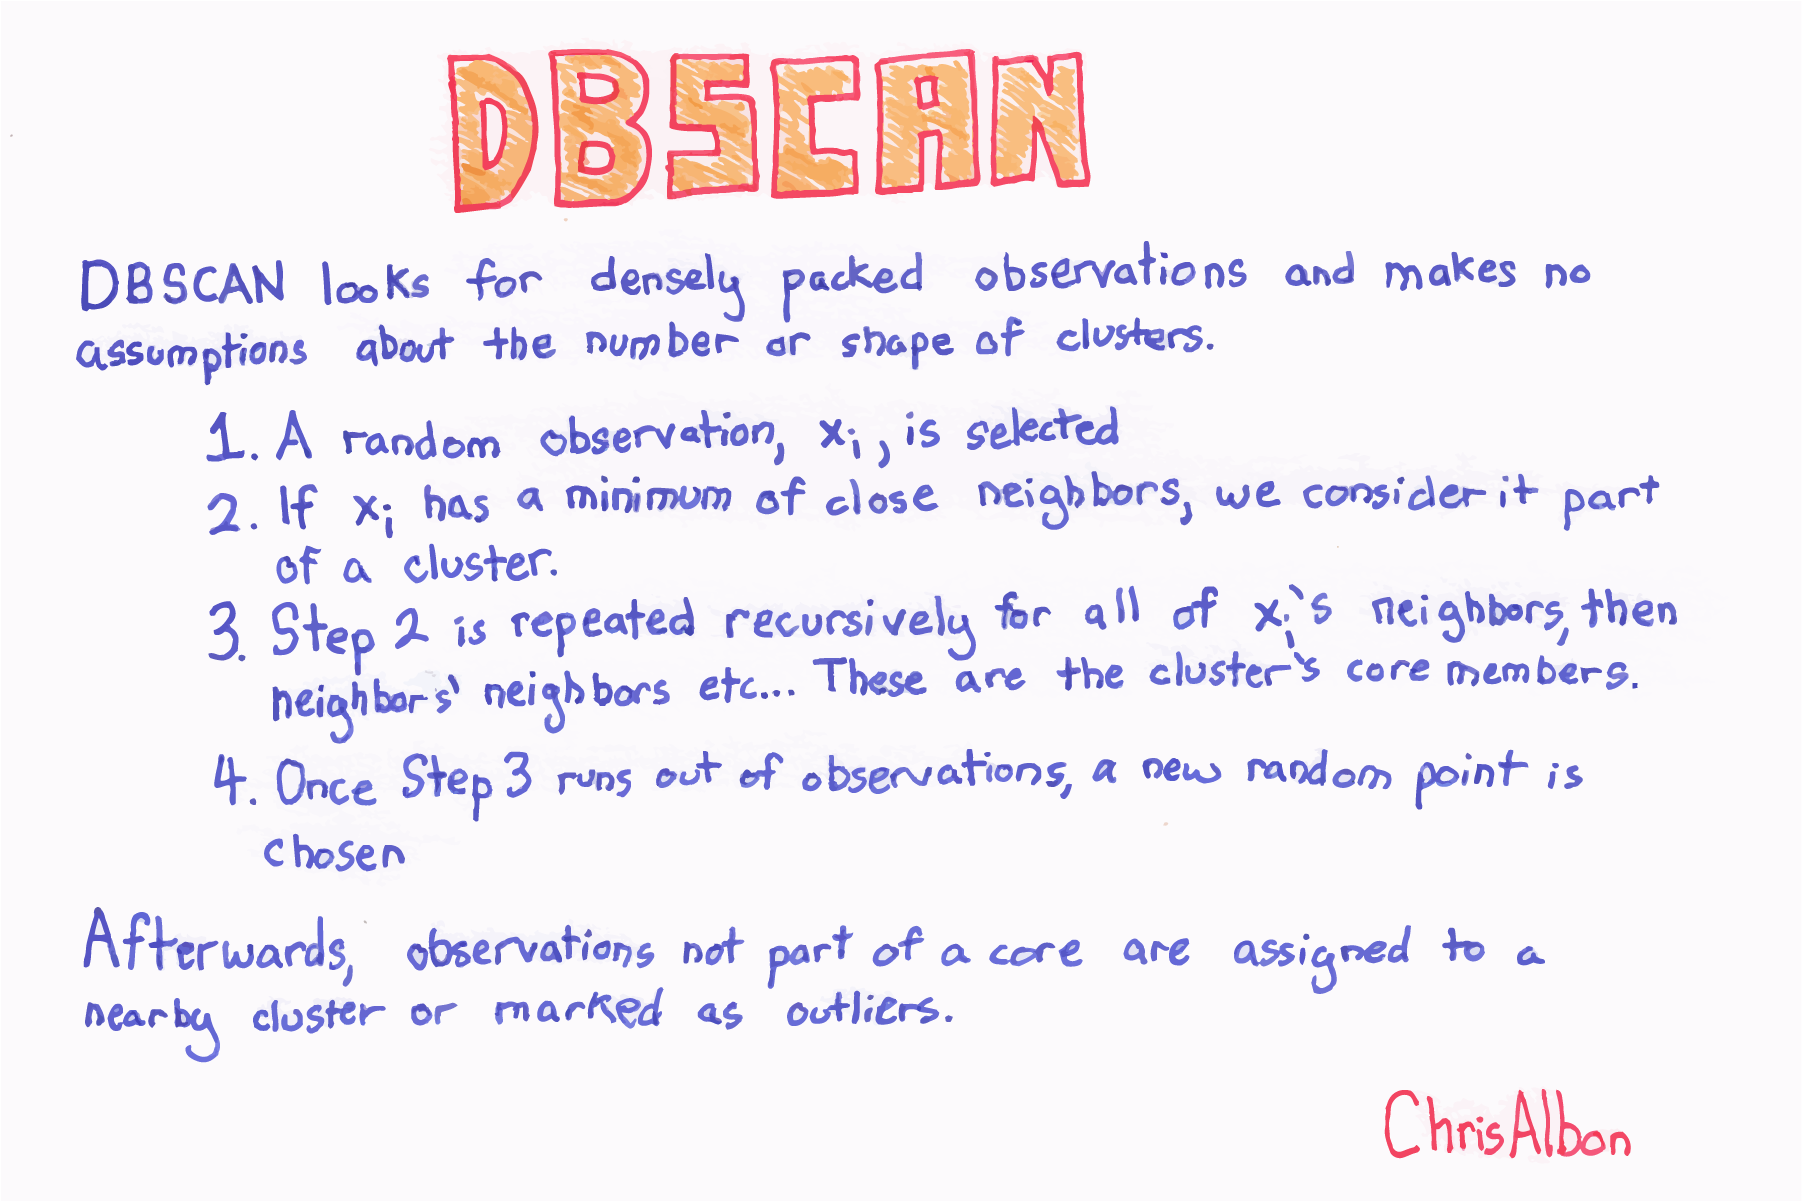 DBSCAN
DBSCAN looks for densely packed observations and makes no
assumptions about the number or shape of clusters.
1. A random observation, xi, is selected
2. If xi has a minimum of close neighbors, we consider it part
of a cluster.
3. Step 2 is repeated recursively for all of xi's neighbors, then
neighbors' neighbors etc... These are the cluster's core members.
4. Once Step 3 runs out of observations, a new random point is
chosen
Afterwards, observations not part of a core are assigned to a
nearby cluster or marked as outliers.
ChrisAlbon